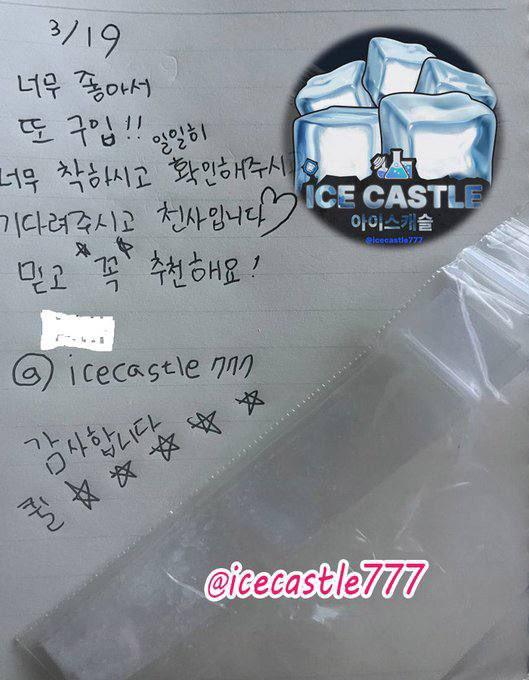 3/19
너무 좋아서
또 구입!! 일일히
너무 착하시고 확인해주시
기다려주시고 천사입니다♡
믿고 꼭 추천해요!
@icecastle 777
감사합니다
ICE CASTLE
아이스캐슬
@icecastle777
@icecastle777